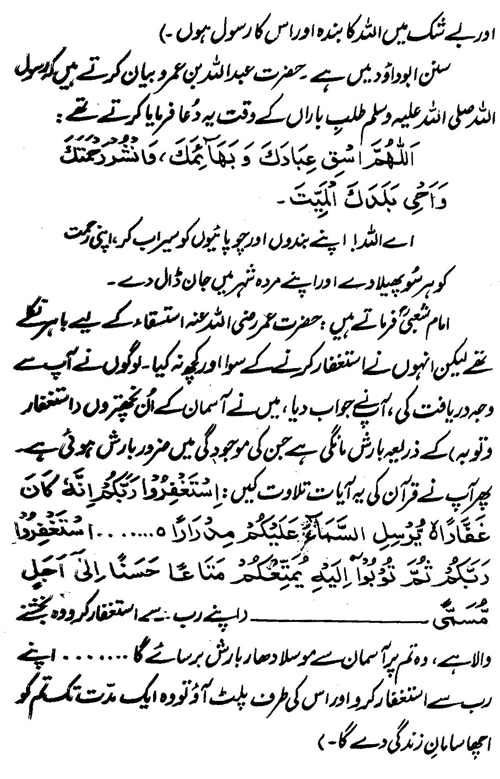 اور بے شک میں اللہ کا بندہ اور اس کا رسول ہوں۔)
سنن ابوداؤد میں ہے۔ حضرت عبداللہ بن عمرو بیان کرتے ہیں کہ رسول
اللہ صلی اللہ علیہ وسلم طلبِ باراں کے وقت یہ دُعا فرمایا کرتے تھے :
اَللّٰهُمَّ اسْقِ عِبَادَكَ وَ بَهَآئِمَكَ، وَانْشُرْ رَحْمَتَكَ
وَاَحْيِ بَلَدَكَ الْمَيِّتَ ۔
اے اللہ! اپنے بندوں اور چوپائیوں کو سیراب کر، اپنی رحمت
کو ہر سُو پھیلا دے اور اپنے مردہ شہر میں جان ڈال دے۔
امام شعبیؒ فرماتے ہیں : حضرت عمر رضی اللہ عنہ استسقاء کے لیے باہر نکلے
تھے لیکن انہوں نے استغفار کرنے کے سوا اور کچھ نہ کیا۔ لوگوں نے آپ سے
وجہ دریافت کی، آپ نے جواب دیا، میں نے آسمان کے اُن نچھتروں (استغفار
و توبہ) کے ذریعہ بارش مانگی ہے جن کی موجودگی میں ضرور بارش ہوتی ہے۔
پھر آپ نے قرآن کی یہ آیات تلاوت کیں : اِسْتَغْفِرُوْا رَبَّكُمْ اِنَّهٗ كَانَ
غَفَّارًا ۵ يُرْسِلِ السَّمَآءَ عَلَيْكُمْ مِدْرَارًا ۵ ....... اسْتَغْفِرُوْا
رَبَّكُمْ ثُمَّ تُوْبُوْا اِلَيْهِ يُمَتِّعْكُمْ مَتَاعًا حَسَنًا اِلٰى اَجَلٍ
مُّسَمًّى ـــــــــــــ (اپنے رب سے استغفار کرو وہ بخشنے
والا ہے، وہ تم پر آسمان سے موسلا دھار بارش برسائے گا ....... اپنے
رب سے استغفار کرو اور اس کی طرف پلٹ آؤ تو وہ ایک مدّت تک تم کو
اچھا سامانِ زندگی دے گا۔)